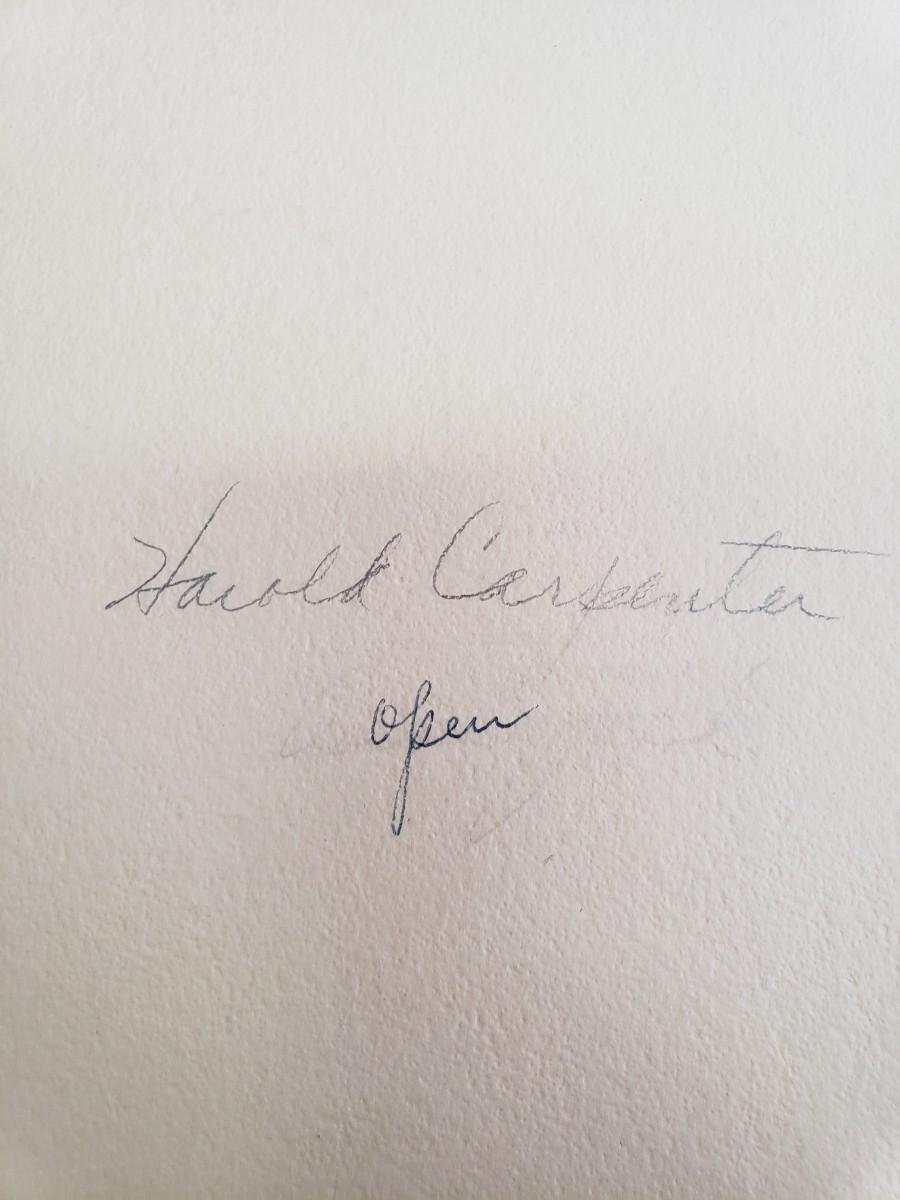 Harold Carpenter
open